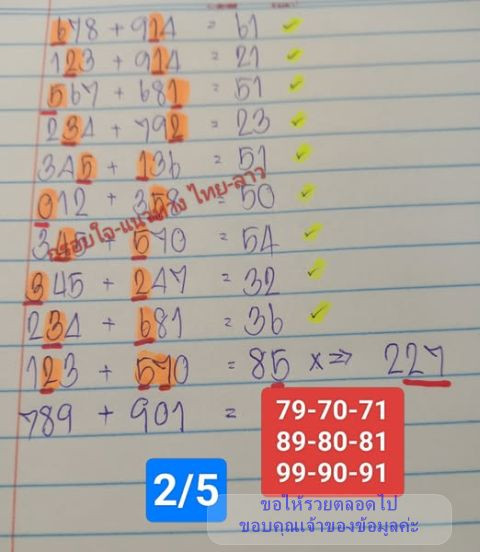 678 + 914 = 61 ✓
123 + 914 = 21 ✓
567 + 681 = 51 ✓
234 + 792 = 23 ✓
345 + 136 = 51 ✓
012 + 358 = 50 ✓
345 + 570 = 54 ✓
345 + 247 = 32 ✓
234 + 681 = 36 ✓
123 + 570 = 85 x => 227
789 + 901 =
79-70-71
89-80-81
99-90-91
2/5
ขอให้รวยตลอดไป
ขอบคุณเจ้าของข้อมูลค่ะ
ไทย-ลาว